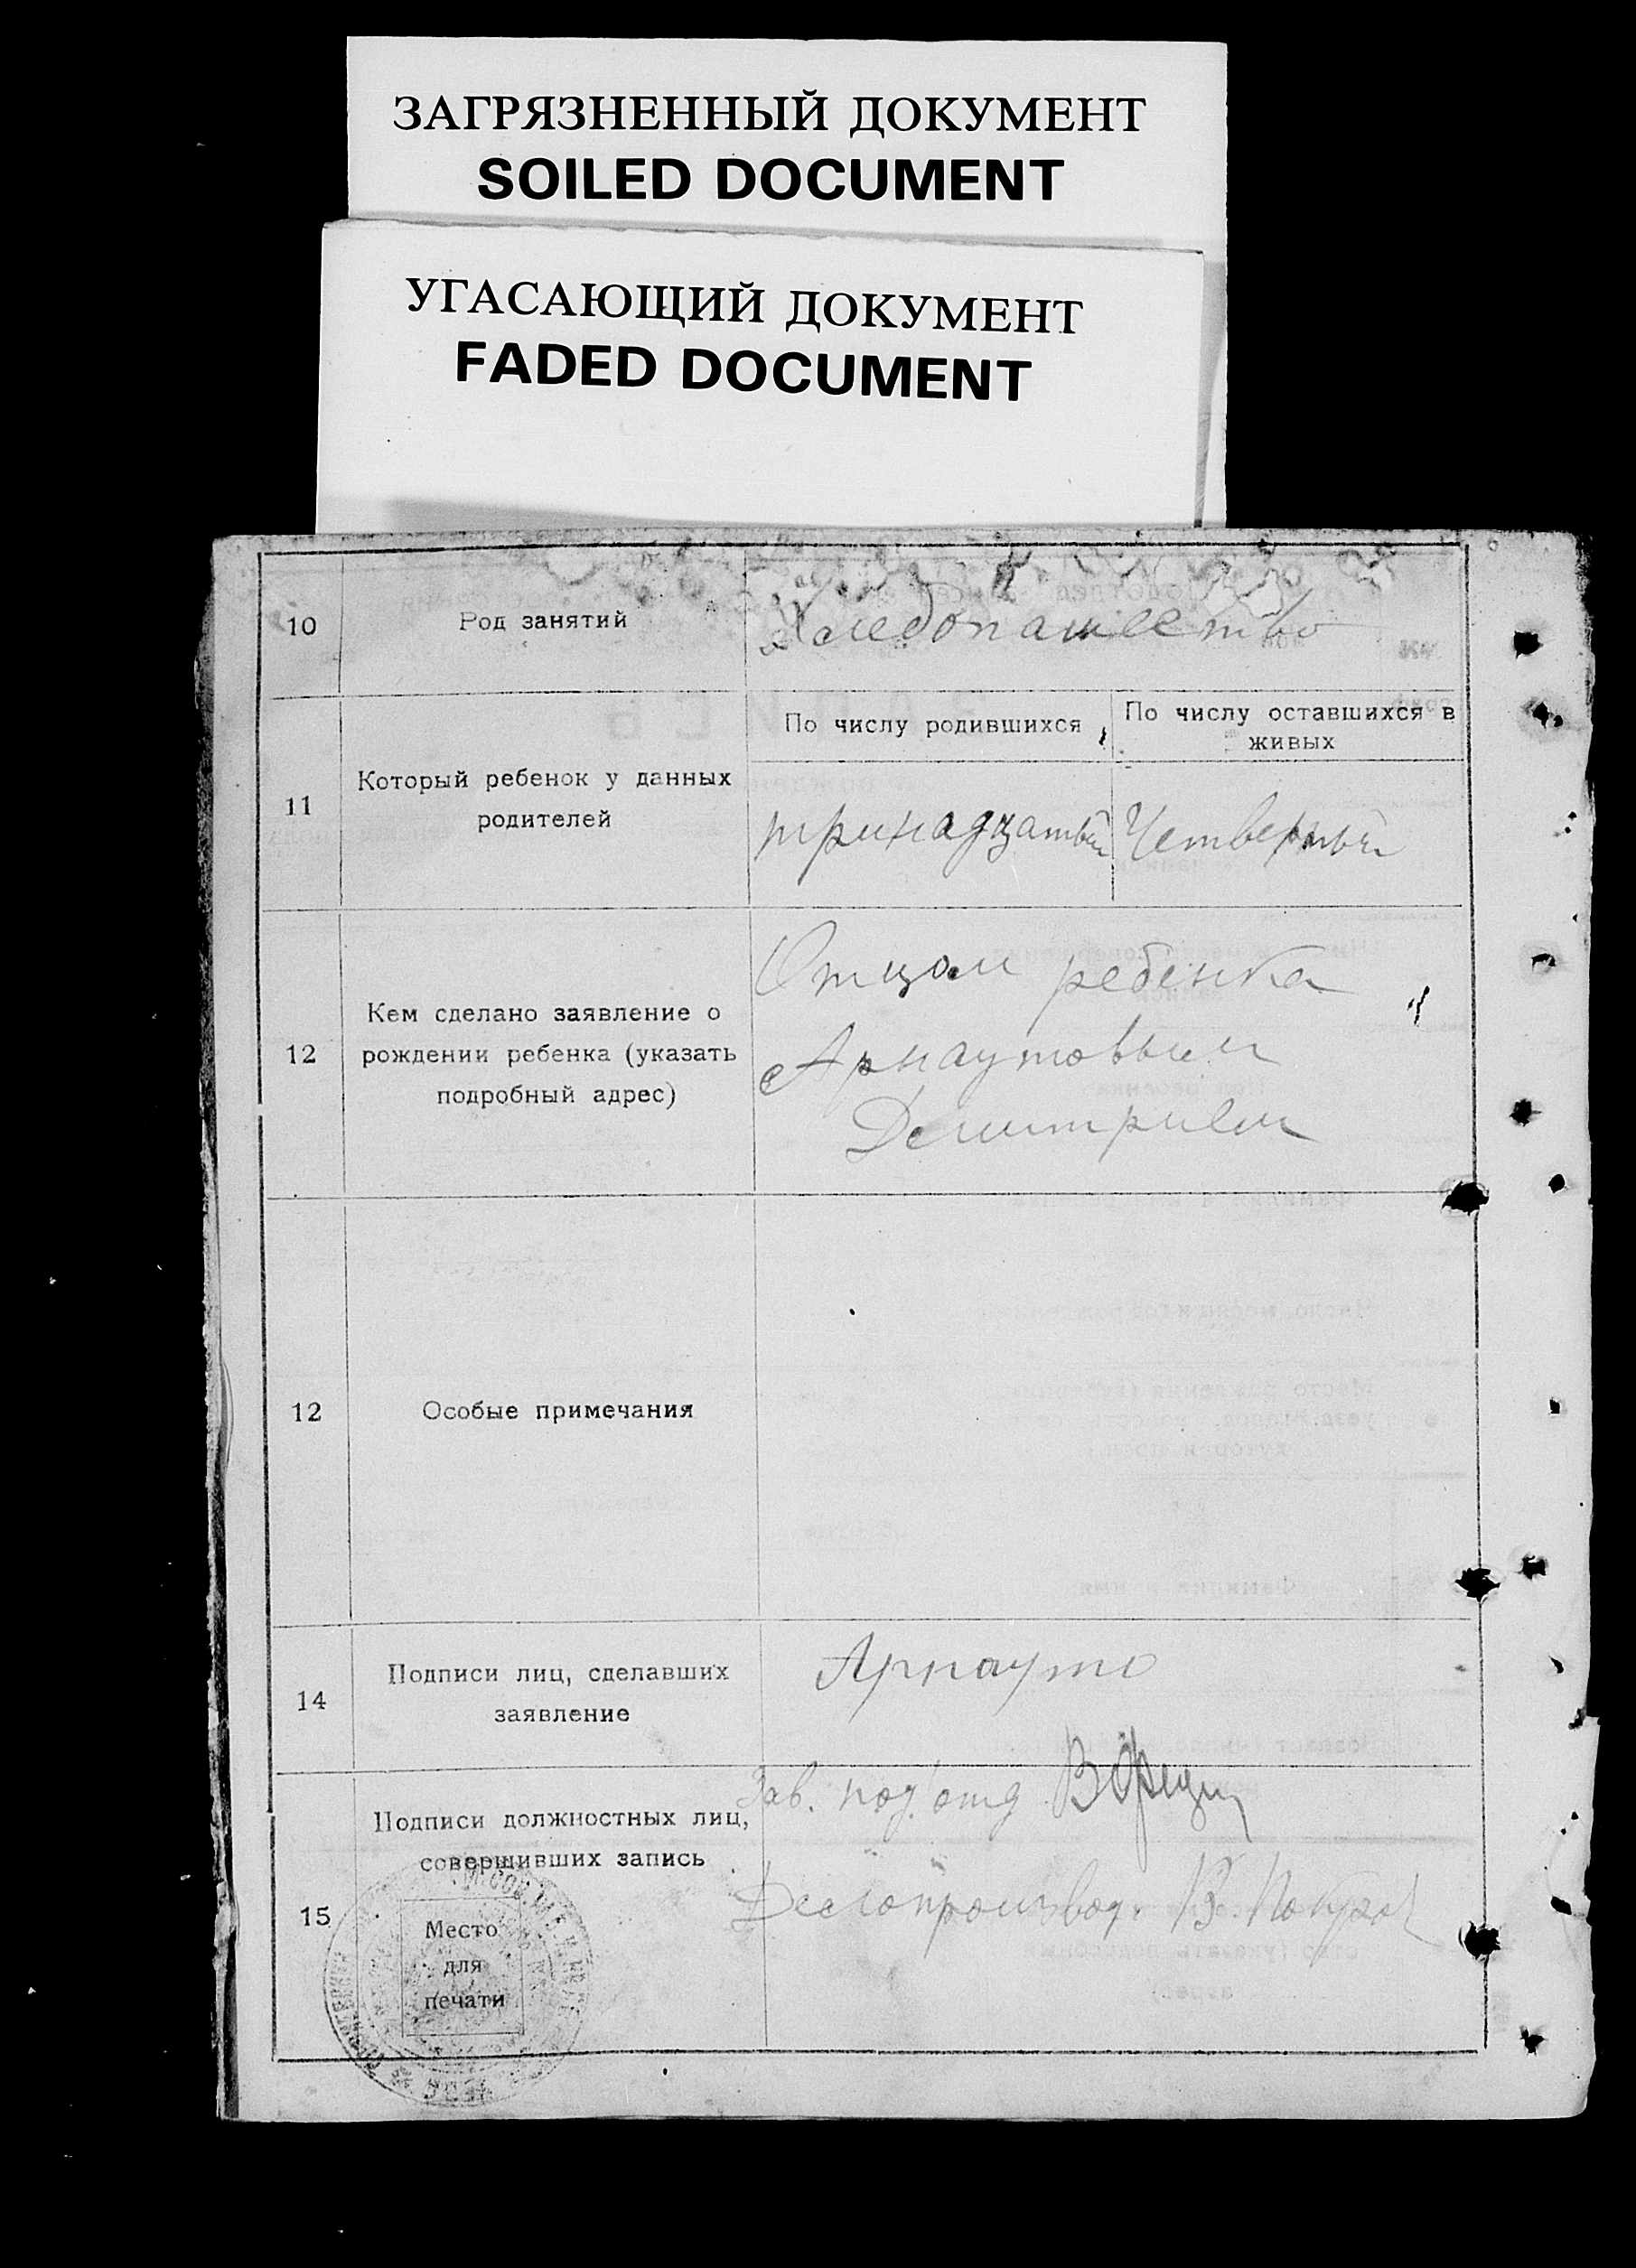 ЗАГРЯЗНЕННЫЙ ДОКУМЕНТ
SOILED DOCUMENT
УГАСАЮЩИЙ ДОКУМЕНТ
FADED DOCUMENT
10
Род занятий
Хлебопашество
11
Который ребенок у данных
родителей
По числу родившихся
По числу оставшихся в
живых
тринадцатый
Четвертый
12
Кем сделано заявление о
рождении ребенка (указать
подробный адрес)
Отцом ребенка
Арнаутовым
Димитрием
12
Особые примечания
14
Подписи лиц, сделавших
заявление
Арнауто
15
Подписи должностных лиц,
совершивших запись
Место
для
печати
Зав. подотд
Делопроизвод. В.